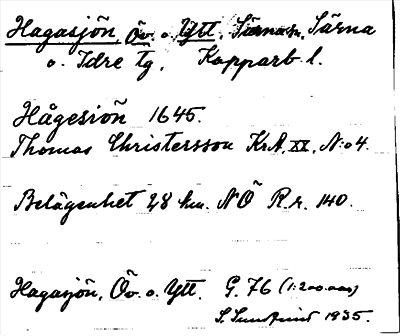 Hagasjön, Öv. o. Ytt. Särna sn, Särna
o. Idre tg, Kopparb. l.
Hågesiöñ 1645.
Thomas Christersson KrA, XX, N:o 4.
Belägenhet 28 km. NÖ R.r. 140.
Hagasjön, Öv. o. Ytt. G. 76 (1:200.000)
S. Sundquist 1935.